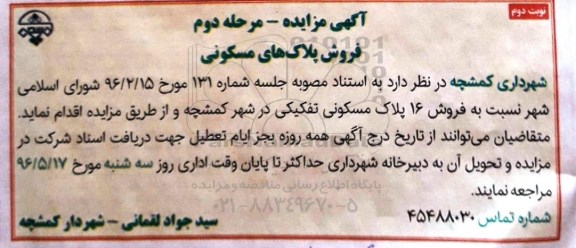 نوبت دوم
آگهی مزایده – مرحله دوم
فروش پلاک‌های مسکونی
شهرداری کمشچه در نظر دارد به استناد مصوبه جلسه شماره ۱۳۱ مورخ ۹۶/۲/۱۵ شورای اسلامی
شهر نسبت به فروش ۱۶ پلاک مسکونی تفکیکی در شهر کمشچه و از طریق مزایده اقدام نماید.
متقاضیان می‌توانند از تاریخ درج آگهی همه روزه بجز ایام تعطیل جهت دریافت اسناد شرکت در
مزایده و تحویل آن به دبیرخانه شهرداری حداکثر تا پایان وقت اداری روز سه شنبه مورخ ۹۶/۵/۱۷
مراجعه نمایند.
پایگاه اطلاع رسانی مناقصه و مزایده
۰۲۱-۸۸۳۴۹۶۷۰-۵
شماره تماس ۴۵۴۸۸۰۳۰
سید جواد لقمانی – شهردار کمشچه